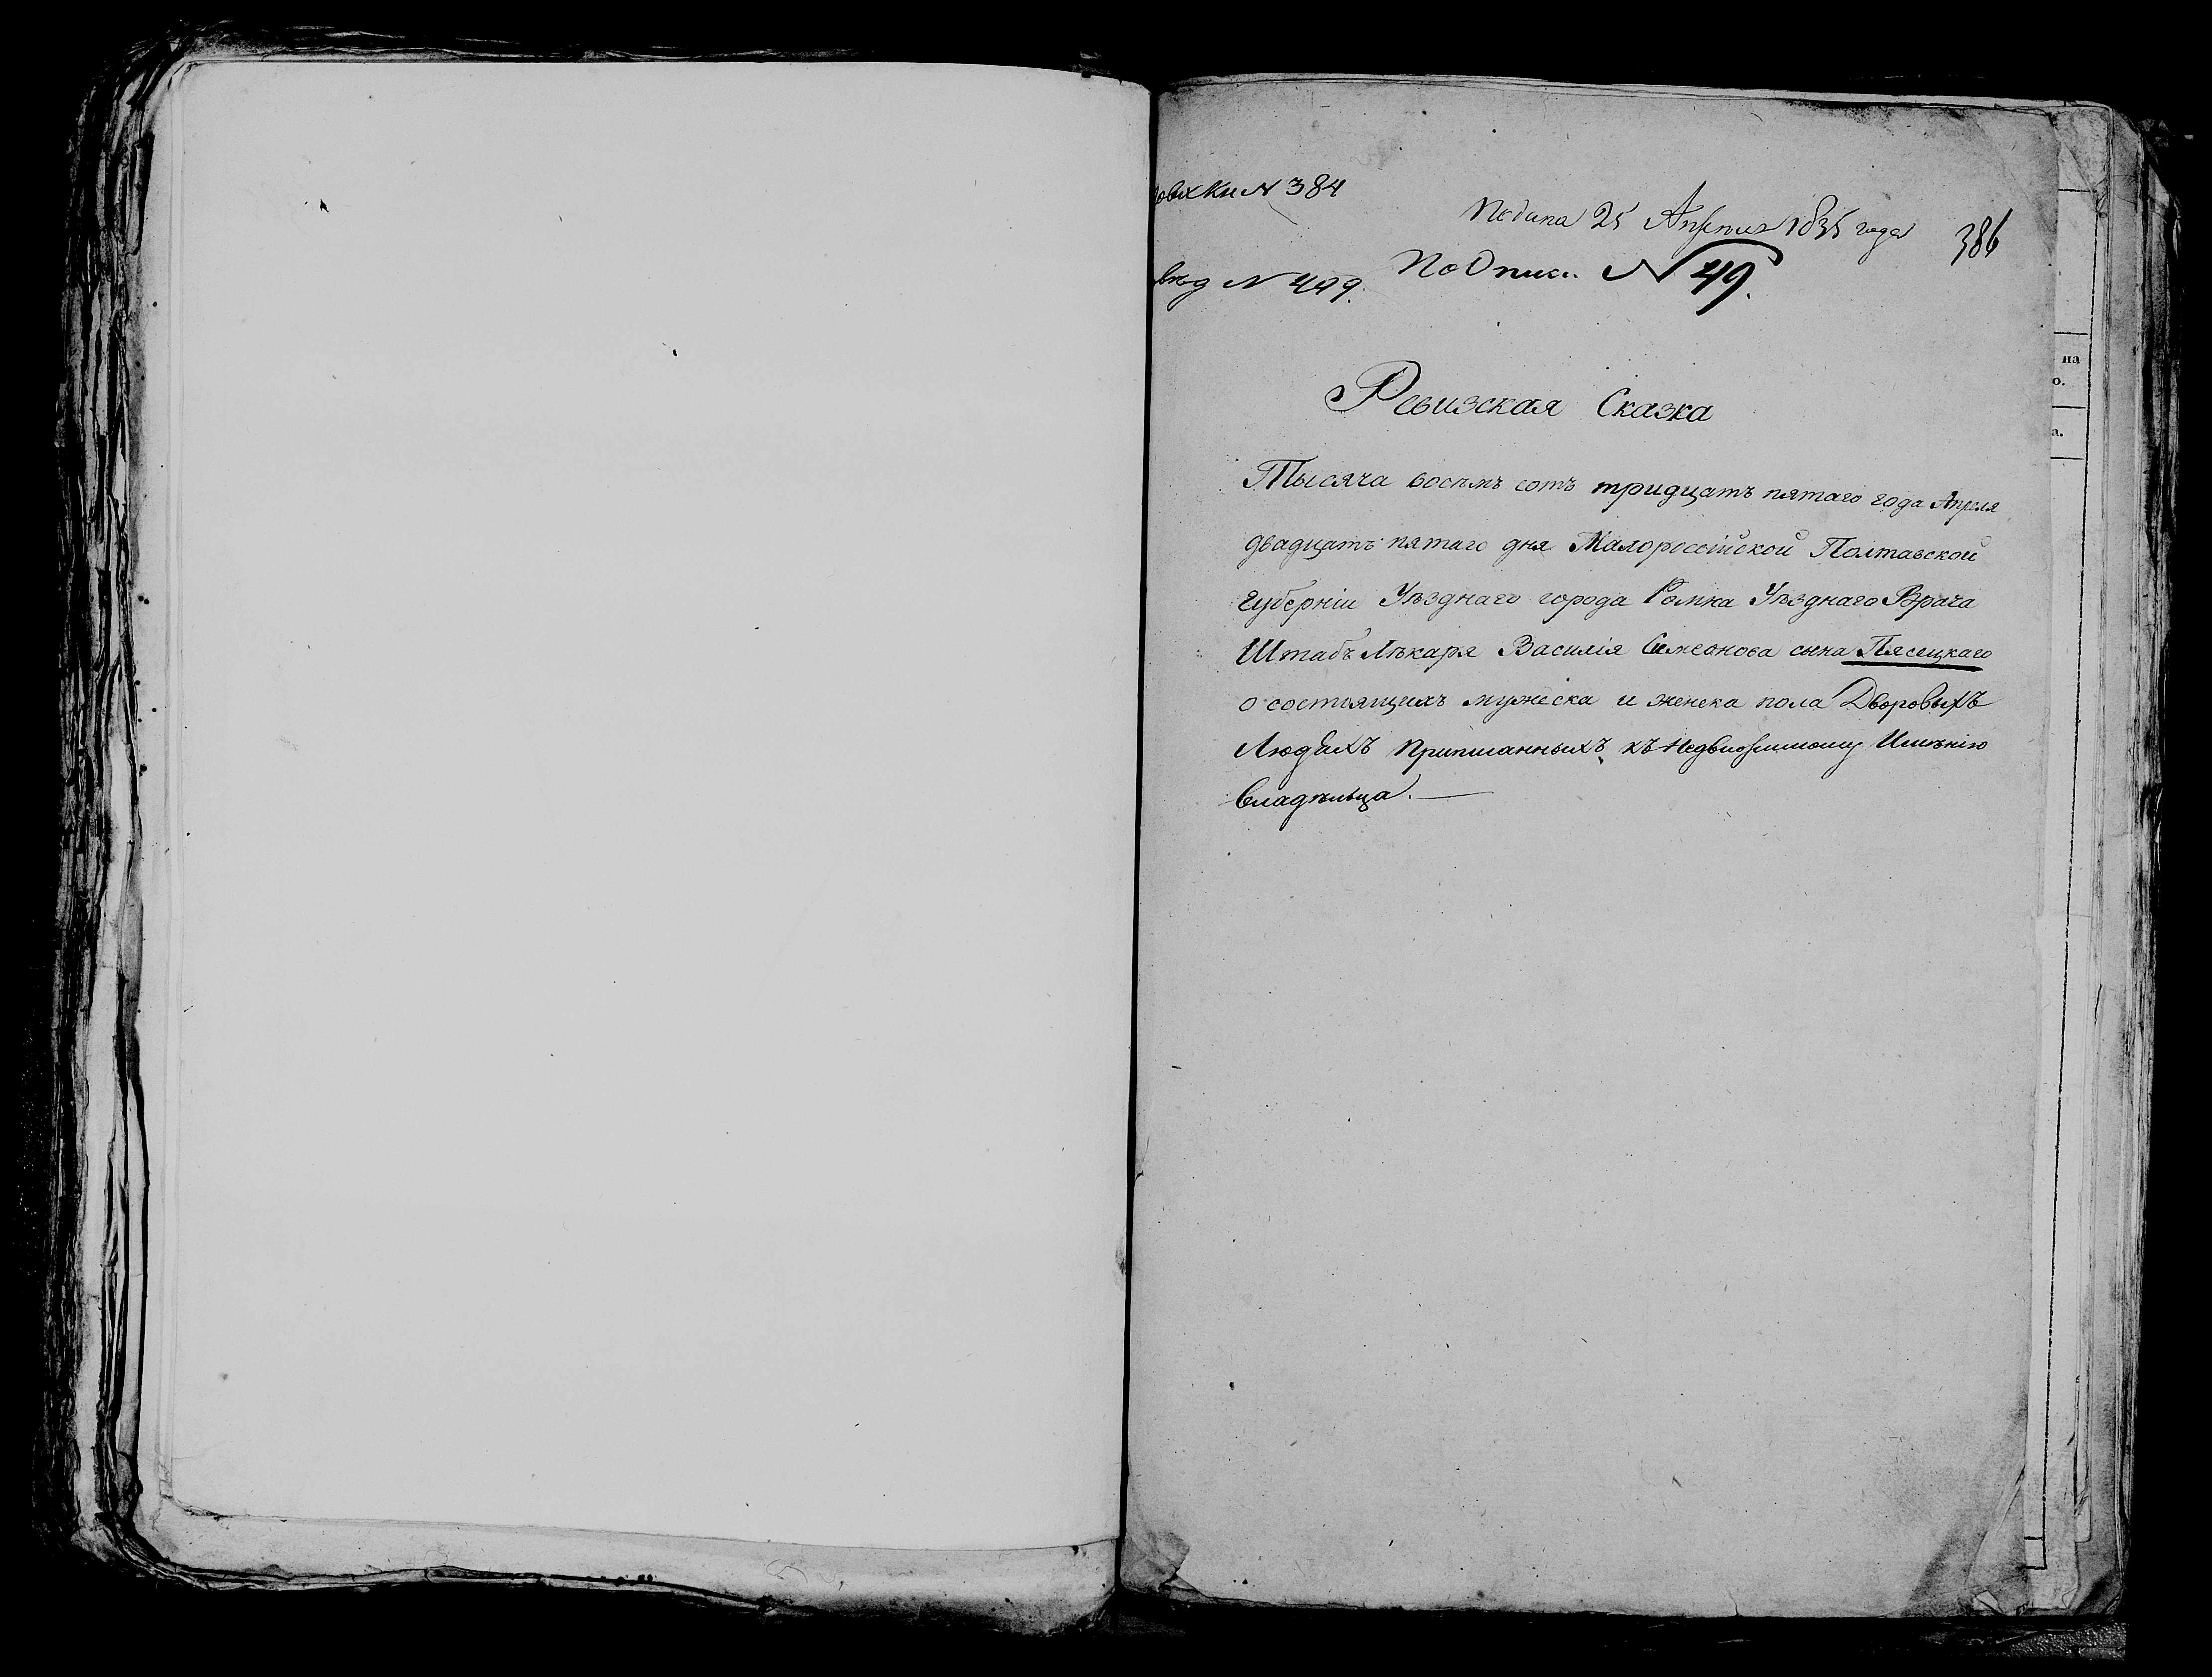 овхКи N 384
Подана 25 Апреля 1835 года
386
вед N 499.
По Опис. N 49.
Ревизская Сказка
Тысяча восемъ сотъ тридцать пятаго года Апреля
двадцать пятаго дня Малоросійской Полтавской
Губерніи Уѣзднаго города Ромна Уѣзднаго Врача
Штабъ Лѣкаря Василія Симеонова сына Пясецкаго
о состоящихъ мужеска и женска пола Дворовыхъ
Людѣхъ Приписанныхъ къ Недвижимому Имѣнію
Владѣльца.
на
о.
а.